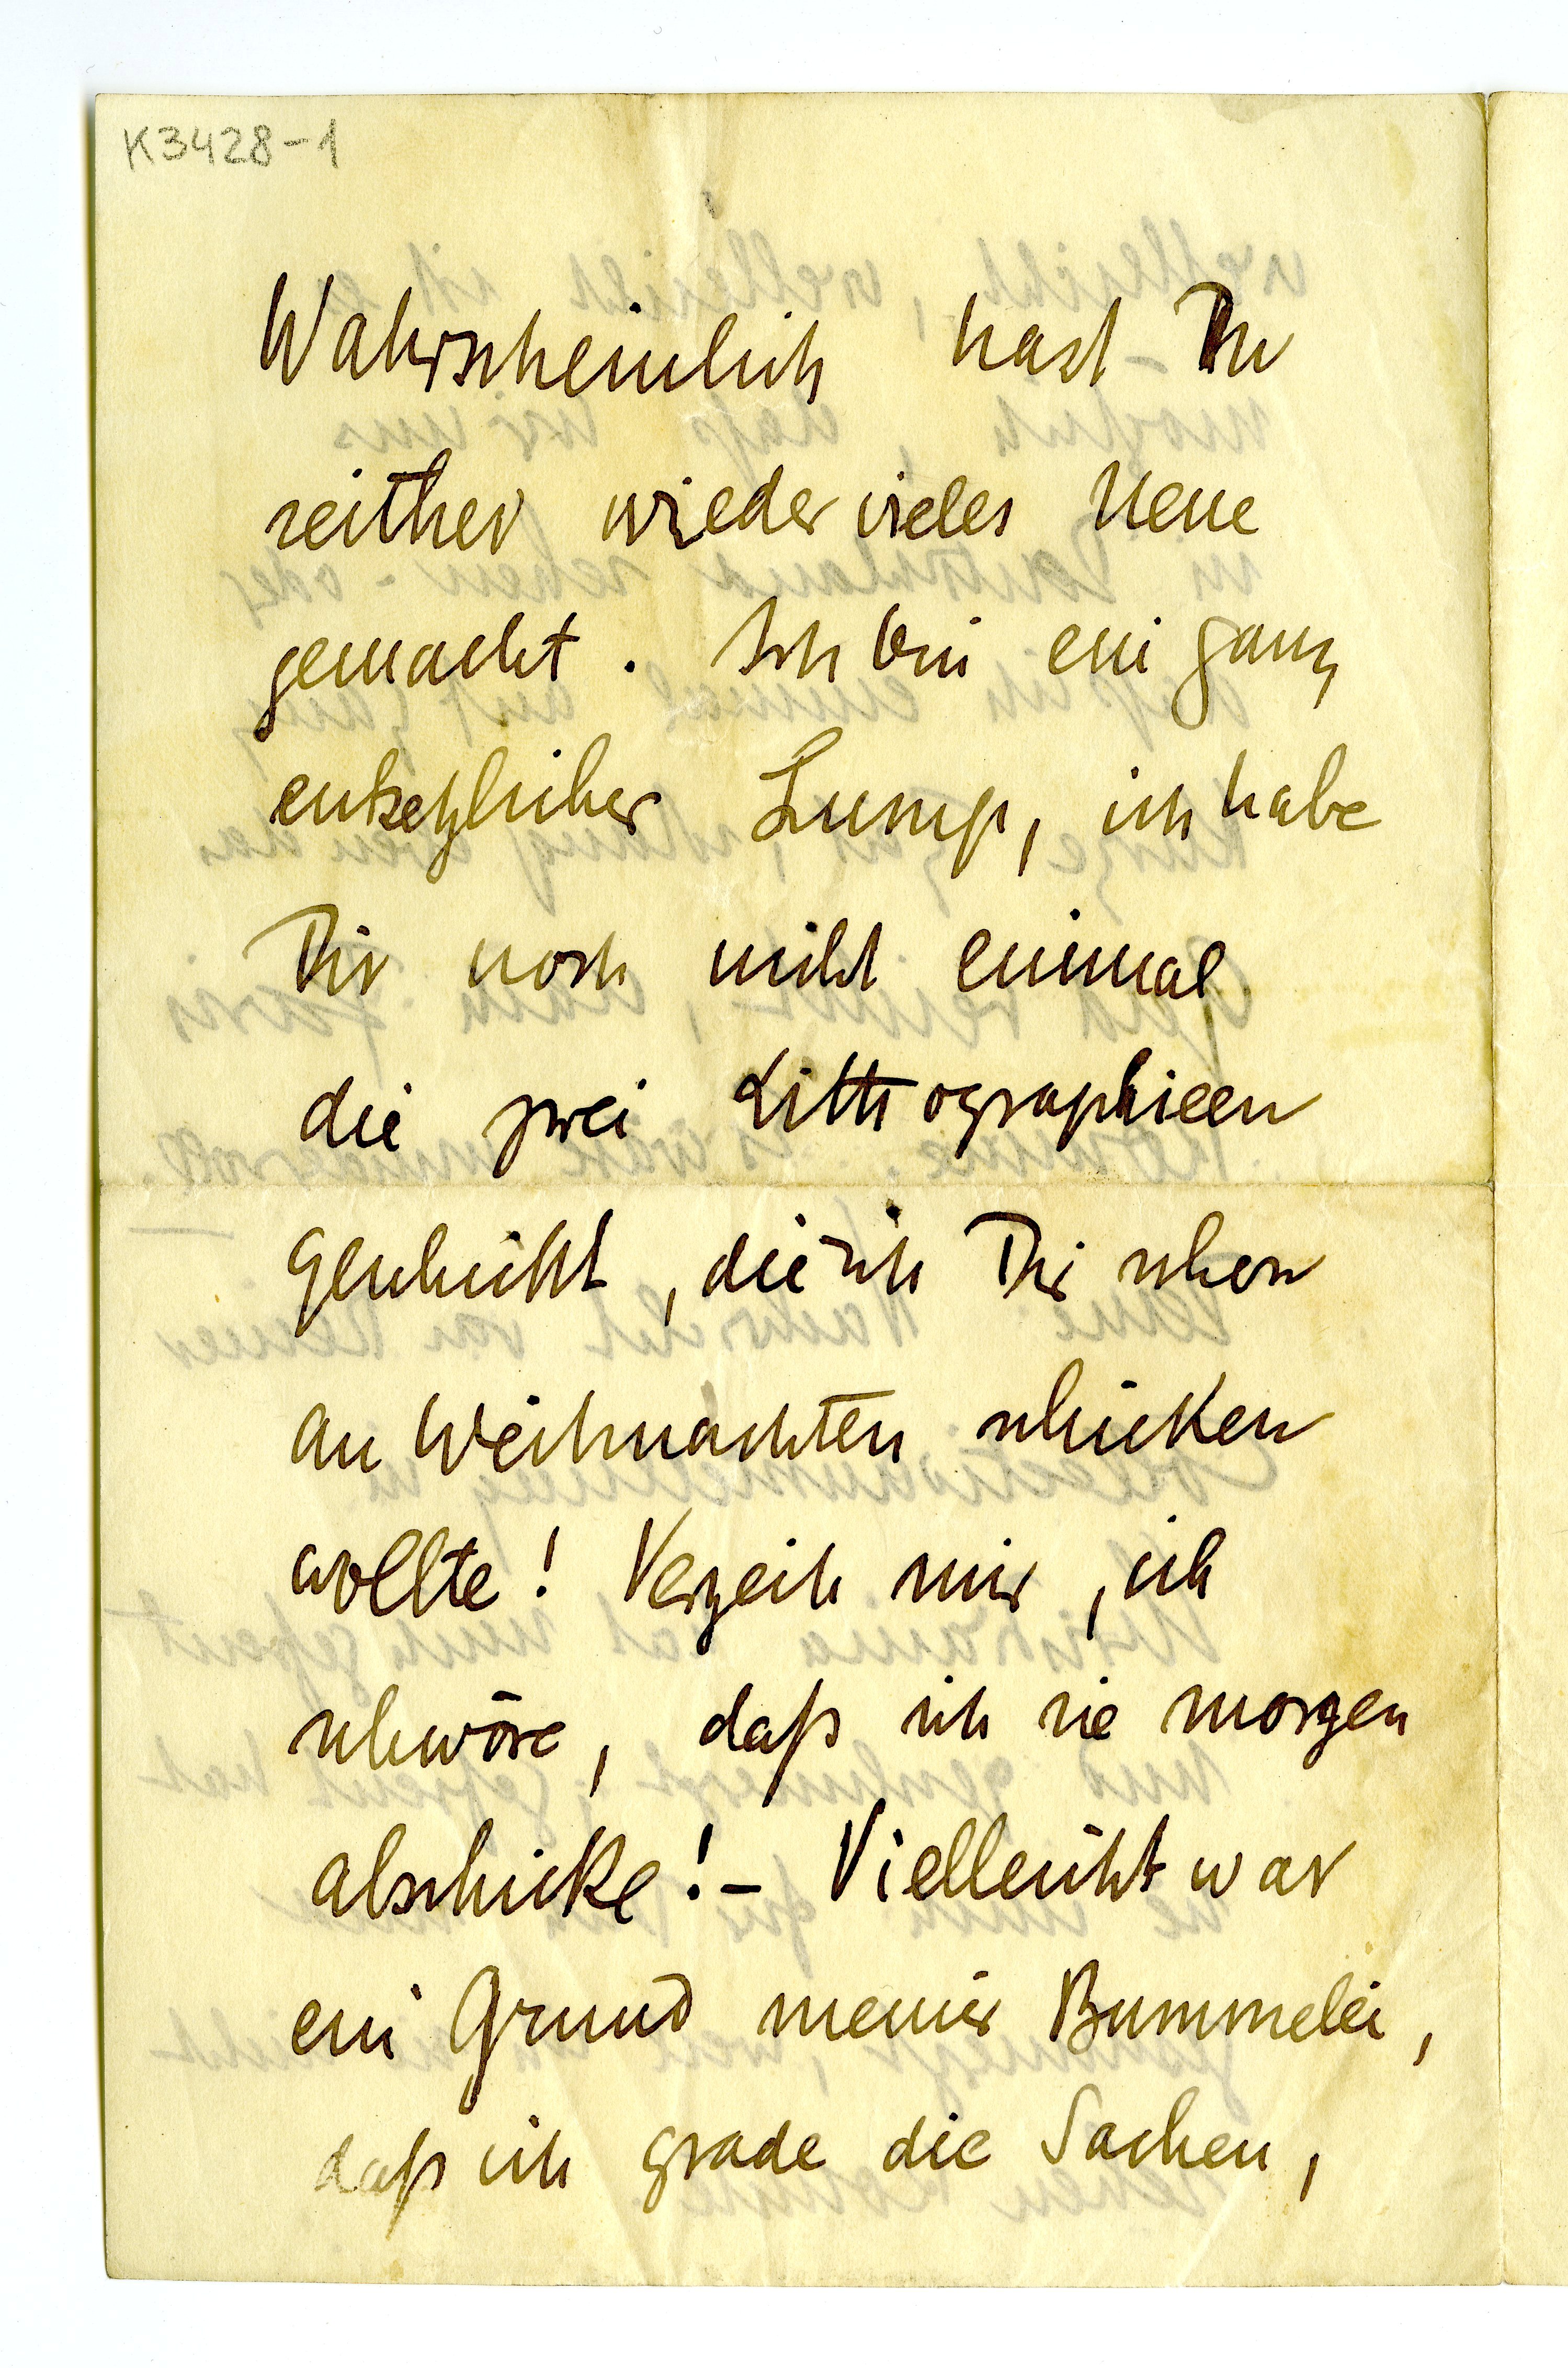 K3428-1
Wahrscheinlich hast Du
seither wieder vieles Neue
gemacht. Ich bin ein ganz
entsetzlicher Lump, ich habe
Dir noch nicht einmal
die zwei Litthographieen
geschickt, die ich Dir schon
an Weihnachten schicken
wollte! Verzeih mir, ich
schwöre, daß ich sie morgen
abschicke! – Vielleicht war
ein Grund meiner Bummelei,
daß ich grade die Sachen,